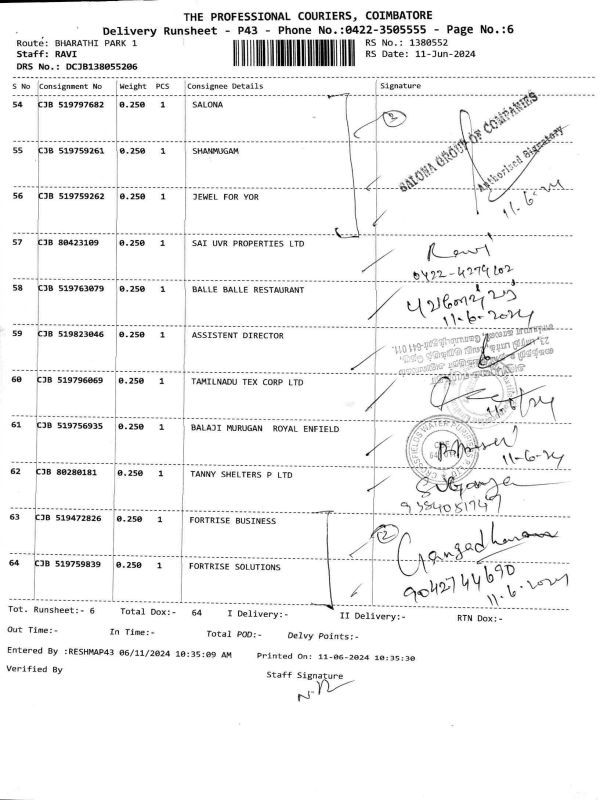 THE PROFESSIONAL COURIERS, COIMBATORE
Delivery Runsheet - P43 - Phone No.:0422-3505555 - Page No.:6
Route: BHARATHI PARK 1 RS No.: 1380552
Staff: RAVI RS Date: 11-Jun-2024
DRS No.: DCJB138055206
S No Consignment No Weight PCS Consignee Details Signature
54 CJB 519797682 0.250 1 SALONA
3
SALONA GROUP OF COMPANIES
Authorised Signatory
11-6-24
55 CJB 519759261 0.250 1 SHANMUGAM
56 CJB 519759262 0.250 1 JEWEL FOR YOR
57 CJB 80423109 0.250 1 SAI UVR PROPERTIES LTD
Ravi
58 CJB 519763079 0.250 1 BALLE BALLE RESTAURANT
11-6-2024
59 CJB 519823046 0.250 1 ASSISTENT DIRECTOR
60 CJB 519796069 0.250 1 TAMILNADU TEX CORP LTD
11/6/24
61 CJB 519756935 0.250 1 BALAJI MURUGAN ROYAL ENFIELD
11-6-24
62 CJB 80280181 0.250 1 TANNY SHELTERS P LTD
63 CJB 519472826 0.250 1 FORTRISE BUSINESS
2
Gangadharan
64 CJB 519759839 0.250 1 FORTRISE SOLUTIONS
9042744690
11-6-2024
Tot. Runsheet:- 6 Total Dox:- 64 I Delivery:- II Delivery:- RTN Dox:-
Out Time:- In Time:- Total POD:- Delvy Points:-
Entered By :RESHMAP43 06/11/2024 10:35:09 AM Printed On: 11-06-2024 10:35:30
Verified By Staff Signature